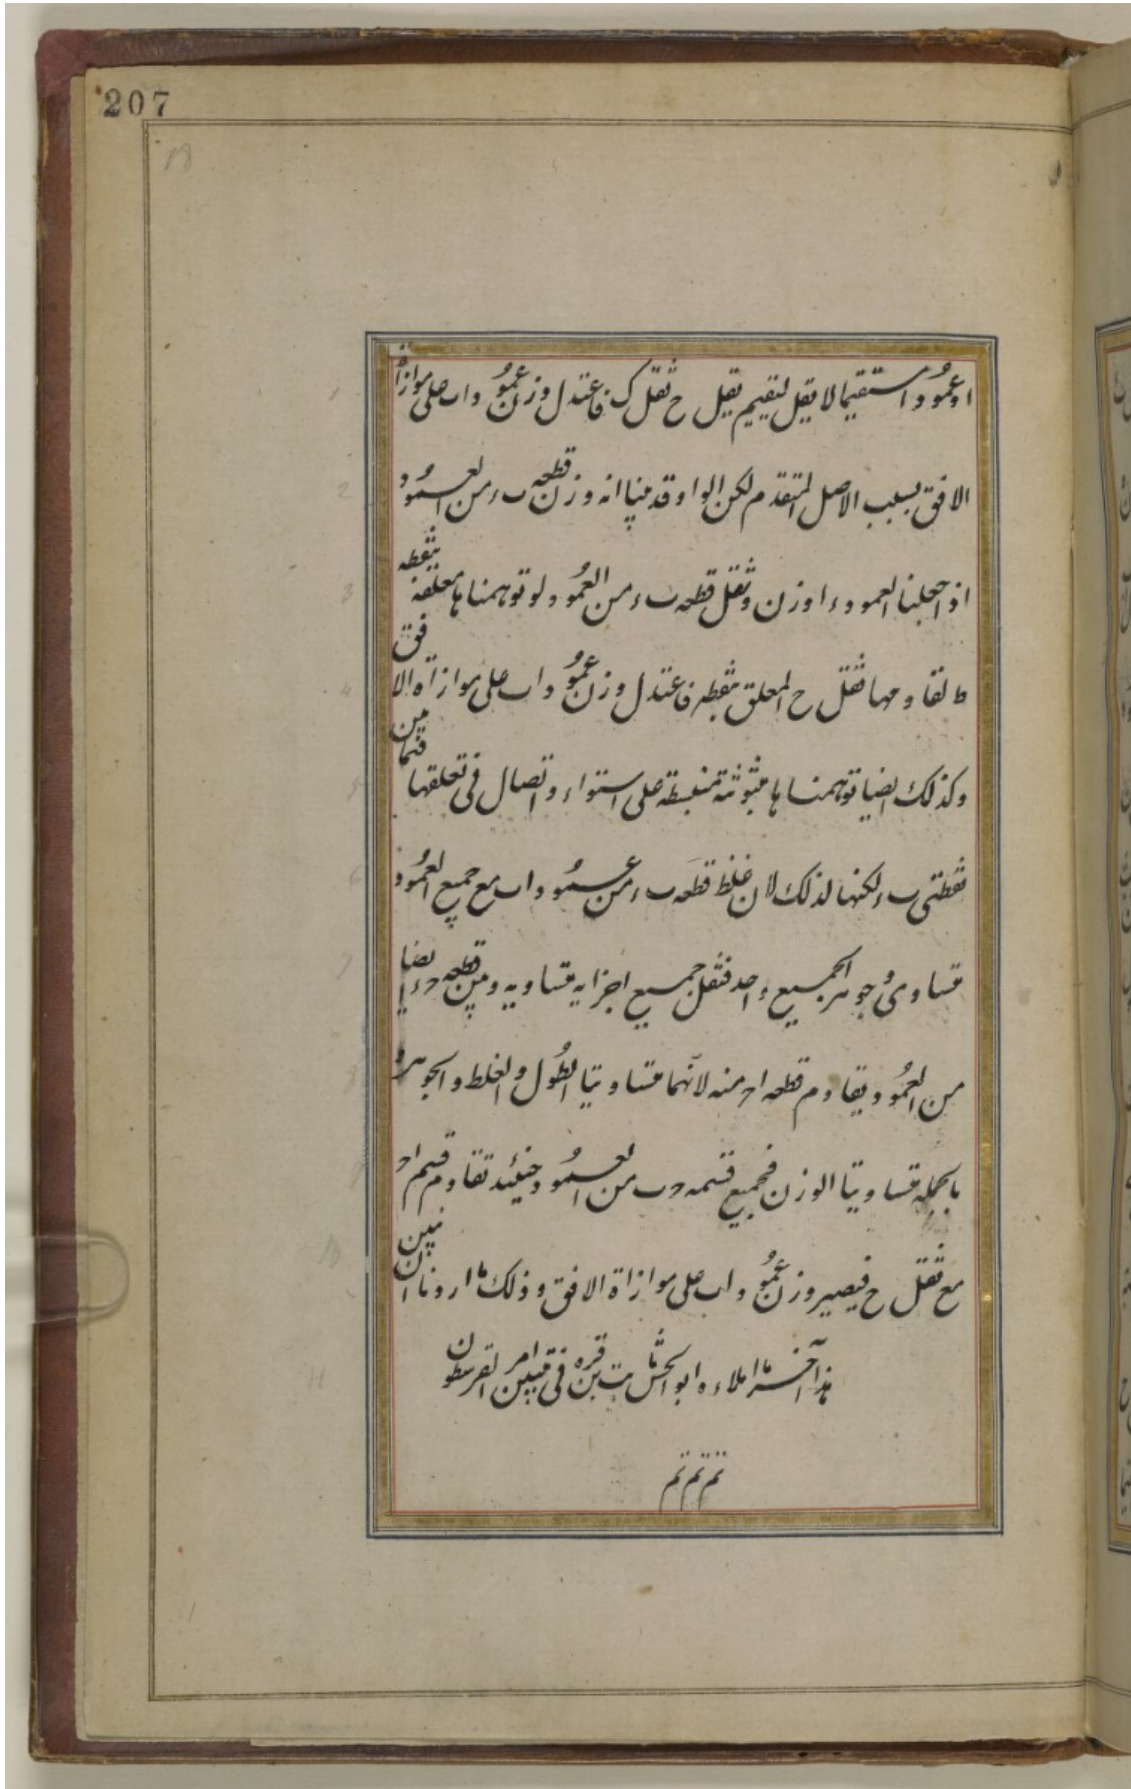 207
او عمود استقيما لا يقل لتقيم يقل ح ثقل ك فاعتدل وزان عمود واب على موازاة
الافق بسبب الاصل المتقدم لكن الواو قد منيا انه وزان قطعه ب ء من العمود
اذا جعلنا العمود ء ا وزن وثقل قطعه ب ء من العمود ولو توهمناها معلقة بنقطه
ط لقاومها ثقل ح المعلق بنقطه فاعتدل وزان عمود واب على موازاة الافق
وكذلك ايضا توهمناها مبثوثة منبسطة على استواء واتصال فى تعلقها فيما بين
نقطتى ب ء لكنها لذلك لان غلظ قطعه ب ء من عمود واب مع جميع العمود
متساوى وجوهر الجميع واحد فثقل جميع اجزايه متساويه وبين قطعه د ء ايضا
من العمود يقاوم قطعه اد منه لانهما متساويتا الطول والغلط والجوهر و
بالجمله متساويتا الوزن فجميع قسمه د ب من العمود حينئد تقاوم قسم اد
مع ثقل ح فيصير وزان عمود واب على موازاة الافق وذلك ما اردنا ان نبين
هذا آخر ما املاءه ابو الحسن ثابت بن قره فى تبيين امر القرسطون
تم تم تم